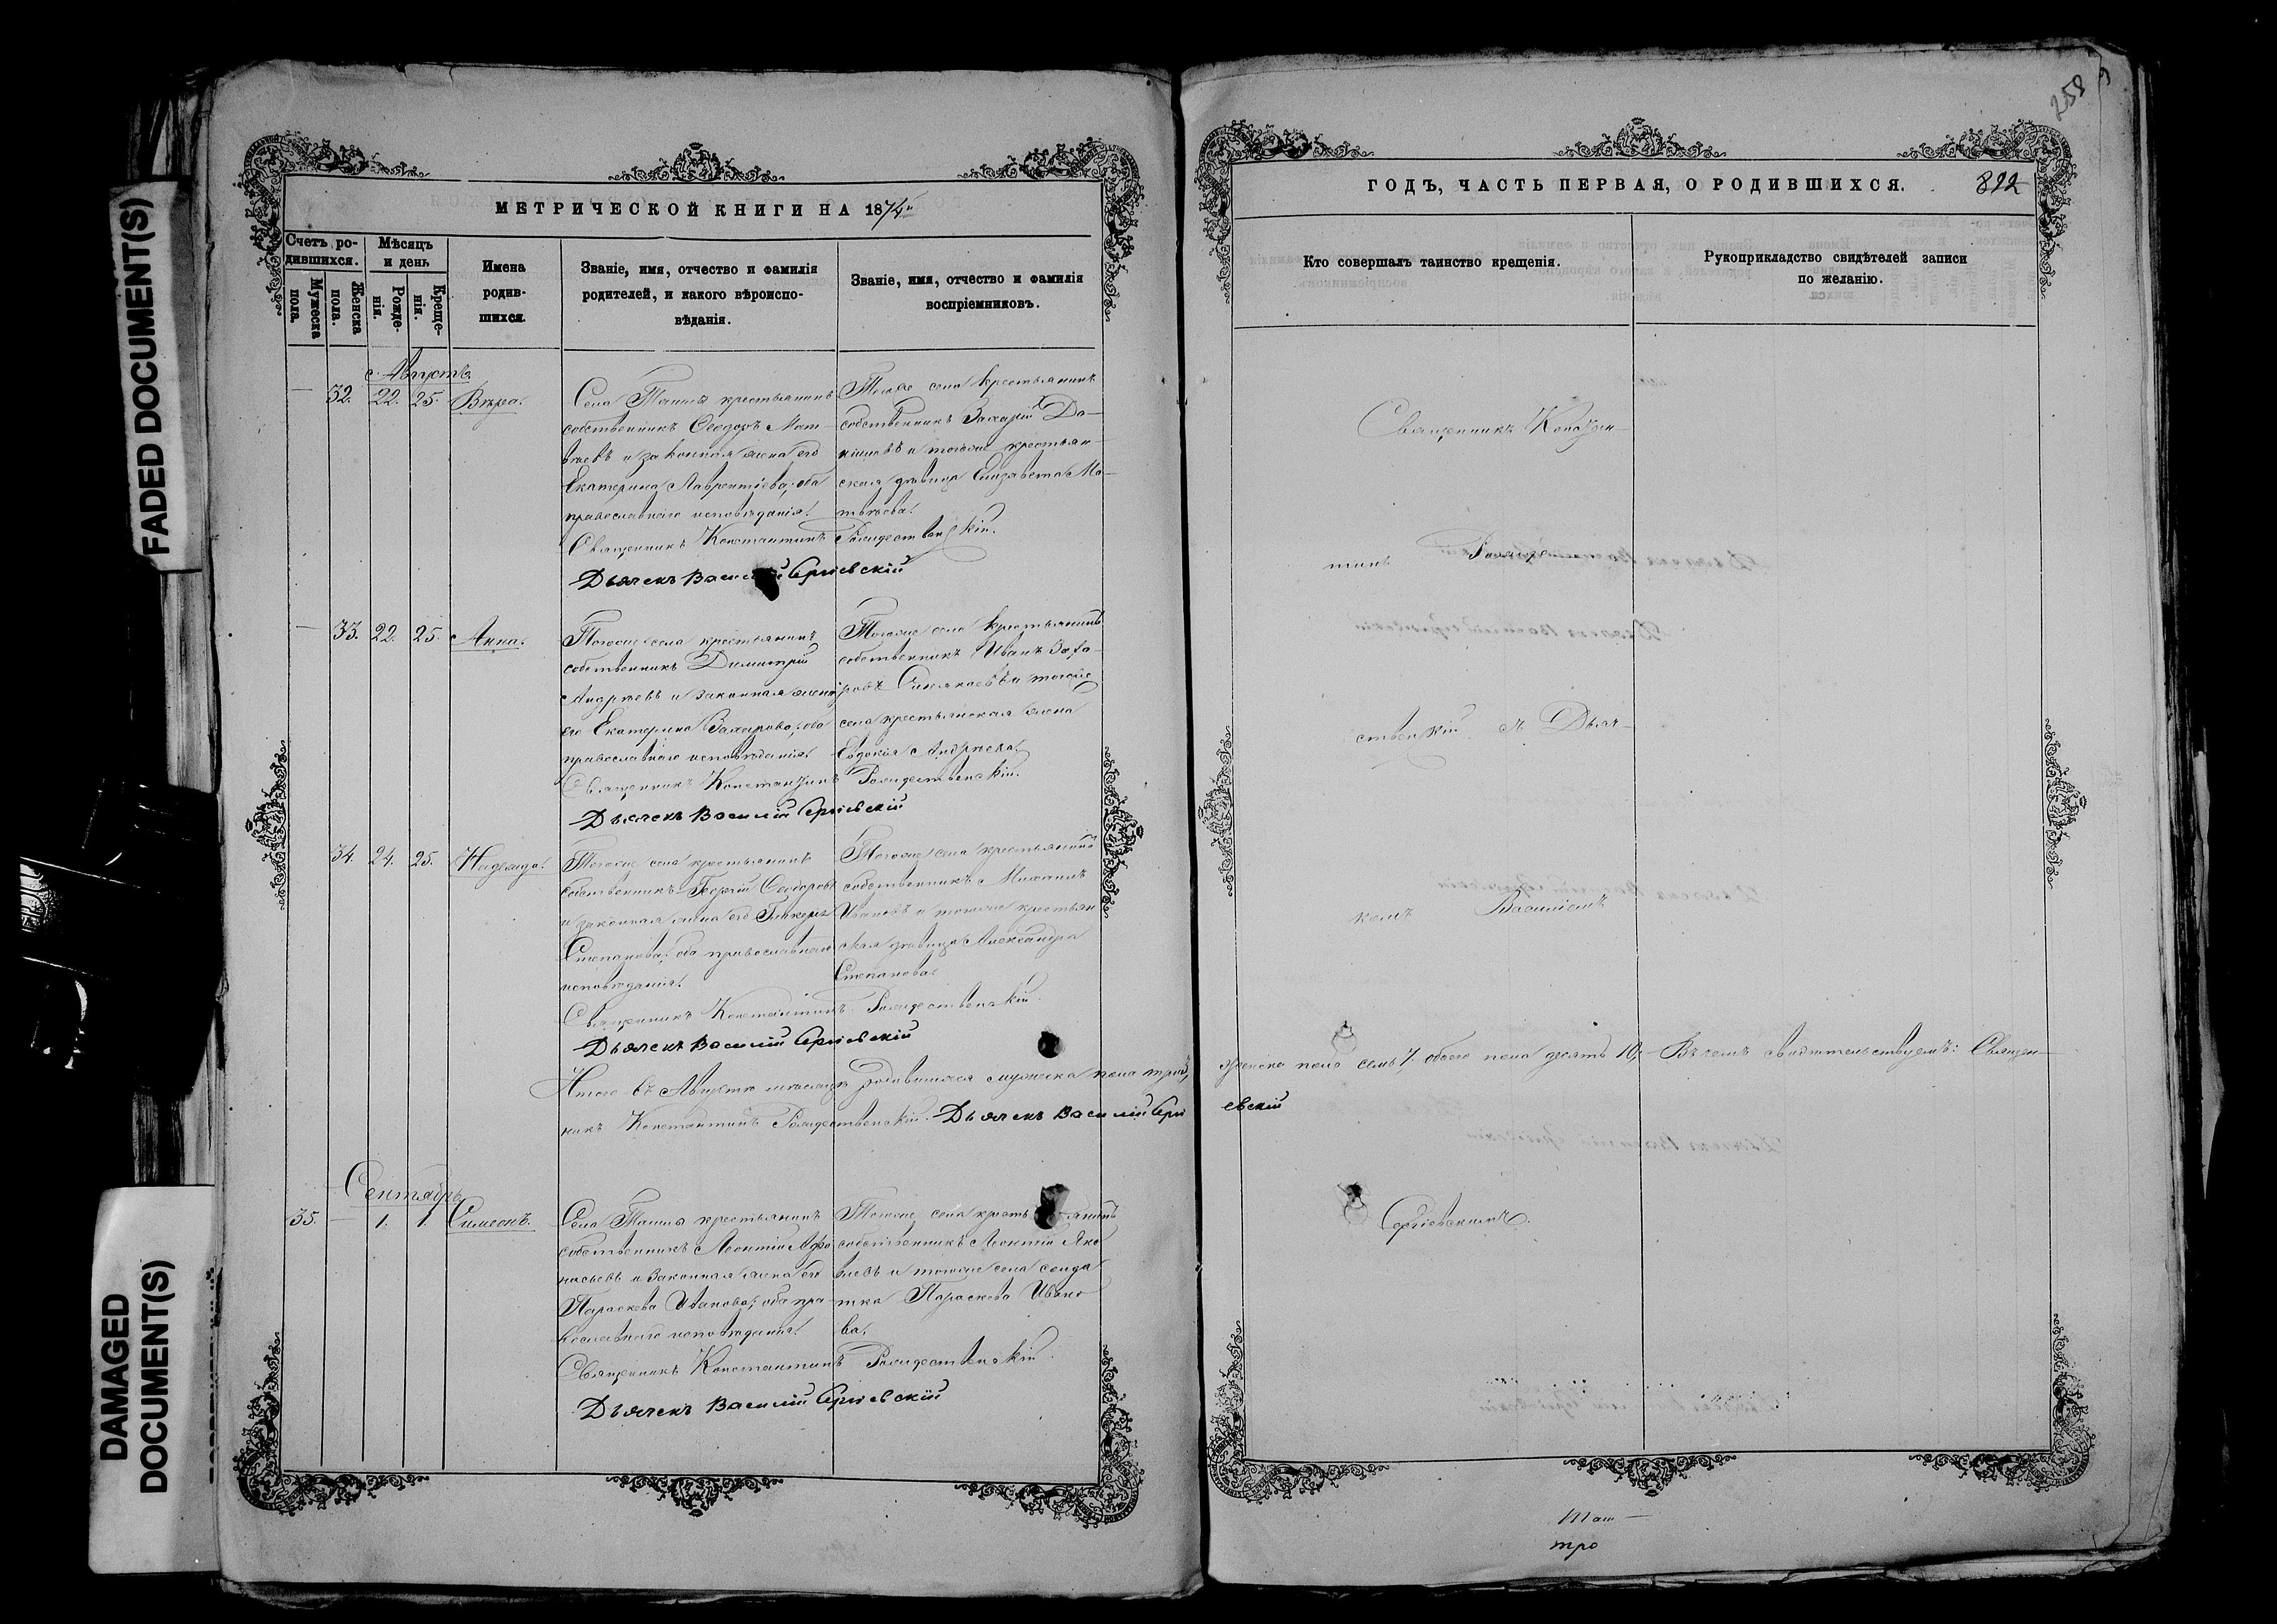 FADED DOCUMENT(S)
DAMAGED
DOCUMENT(S)
МЕТРИЧЕСКОЙ КНИГИ НА 1874
Счетъ ро-
дившихся.
Мужеска
пола.
Женска
пола.
Мѣсяцъ
и день
Рожде-
нія.
Креще-
нія.
Имена
родив-
шихся.
Званіе, имя, отчество и фамилія
родителей, и какого вѣроиспо-
вѣданія.
Званіе, имя, отчество и фамилія
воспріемниковъ.
Августъ.
32. 22. 25. Вѣра.
Села крестьянинъ
собственникъ Ѳеодоръ Мат-
вѣевъ и законная жена его
Екатерина Лаврентіева, оба
православнаго исповѣданія.
Тогоже села крестьянинъ
собственникъ Захарій
и тогоже крестьян-
ская дѣвица Елизавета Ма-
твѣева.
Священникъ Константинъ Рождественскій.
Дьячекъ Василій Сергіевскій
33. 22. 25. Анна.
Тогоже села крестьянинъ
собственникъ Димитрій
Андреевъ и законная жена
его Екатерина Захарова, оба
православнаго исповѣданія.
Тогоже села крестьянинъ
собственникъ Иванъ Заха-
ровъ и тогоже
села крестьянская жена
Евдокія Андреева.
Священникъ Константинъ Рождественскій.
Дьячекъ Василій Сергіевскій
34. 24. 25. Надежда.
Тогоже села крестьянинъ
собственникъ Георгій Ѳеодоровъ
и законная жена его Гликерія
Степанова, оба православнаго
исповѣданія.
Тогоже села крестьянинъ
собственникъ Михаилъ
Ивановъ и тогоже крестьян
ская дѣвица Александра
Степанова.
Священникъ Константинъ Рождественскій.
Дьячекъ Василій Сергіевскій
Итого въ Августѣ мѣсяцѣ родившихся мужеска пола три 3,
женска пола семь 7. обоего пола десять 10,— Въ чемъ свидѣтельствуемъ: Священ-
никъ Константинъ Рождественскій. Дьячекъ Василій Сергі
евскій
Сентябрь.
35. — 1. 1. Симеонъ.
Села крестьянинъ
собственникъ Леонтій Афа
насьевъ и законная жена его
Параскева Иванова, оба пра-
вославнаго исповѣданія.
Тогоже села крестьянинъ
собственникъ Леонтій Яко
влевъ и тогоже села солда
тка Параскева Ивано
ва.
Священникъ Константинъ Рождественскій.
Дьячекъ Василій Сергіевскій
258
ГОДЪ, ЧАСТЬ ПЕРВАЯ, О РОДИВШИХСЯ. 822
Кто совершалъ таинство крещенія.
Рукоприкладство свидѣтелей записи
по желанію.
Священникъ Констан-
тинъ Рожде-
ственскій съ Дьяч-
комъ Василіемъ
Сергіевскимъ.
тро